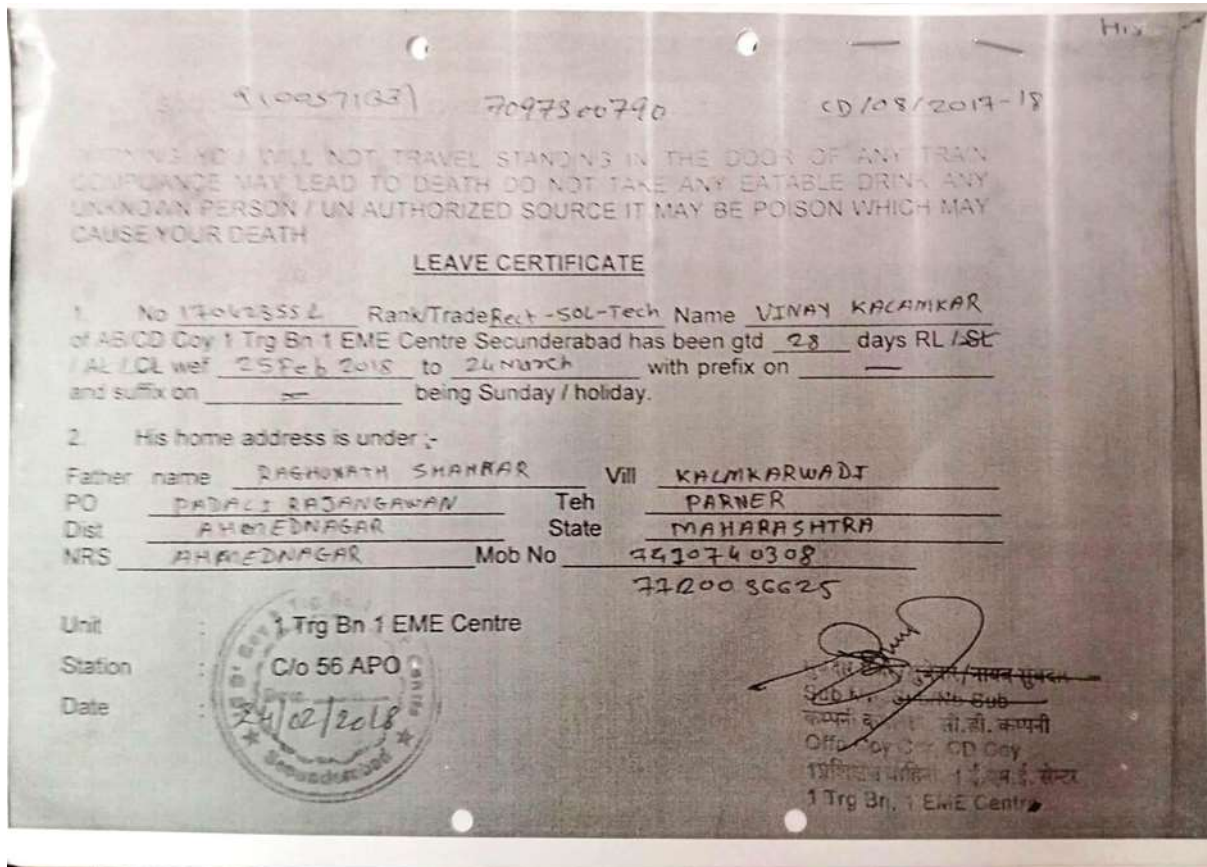 His
9100571331 7097300790 CD/08/2017-18
WARNING YOU WILL NOT TRAVEL STANDING IN THE DOOR OF ANY TRAIN
COMPLIANCE MAY LEAD TO DEATH DO NOT TAKE ANY EATABLE DRINK ANY
UNKNOWN PERSON / UN AUTHORIZED SOURCE IT MAY BE POISON WHICH MAY
CAUSE YOUR DEATH
LEAVE CERTIFICATE
1. No Rank/Trade Rect-SOL-Tech Name VINAY KALAMKAR
of AB/CD Coy 1 Trg Bn 1 EME Centre Secunderabad has been gtd 28 days RL / SL
/ AL / CL wef 25 Feb 2018 to 24 March with prefix on —
and suffix on — being Sunday / holiday.
2. His home address is under :-
Father name RAGHUNATH SHANKAR Vill KALMKARWADI
PO PADALI RAJANGAWAN Teh PARNER
Dist AHMEDNAGAR State MAHARASHTRA
NRS AHMEDNAGAR Mob No 7410740308
Unit : 1 Trg Bn 1 EME Centre
Station : C/o 56 APO
Date : 24/02/2018
Secunderabad
/नायब सुबेदार
Sub Nb Sub
कम्पनी सी.डी. कम्पनी
Coy CD Coy
1 ई.एम.ई. सेन्टर
1 Trg Bn, 1 EME Centre